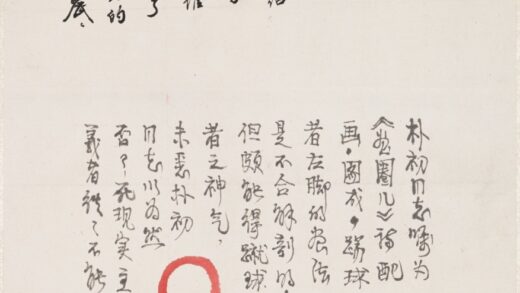 了
的
朴初同志嘱为
《圈儿》诗配
画。图成,踢球
者左脚的法
是不合解剖的。
但颇能得蹴球
者之神气,
未悉朴初
同志以为然
否?死现实主
義者不能